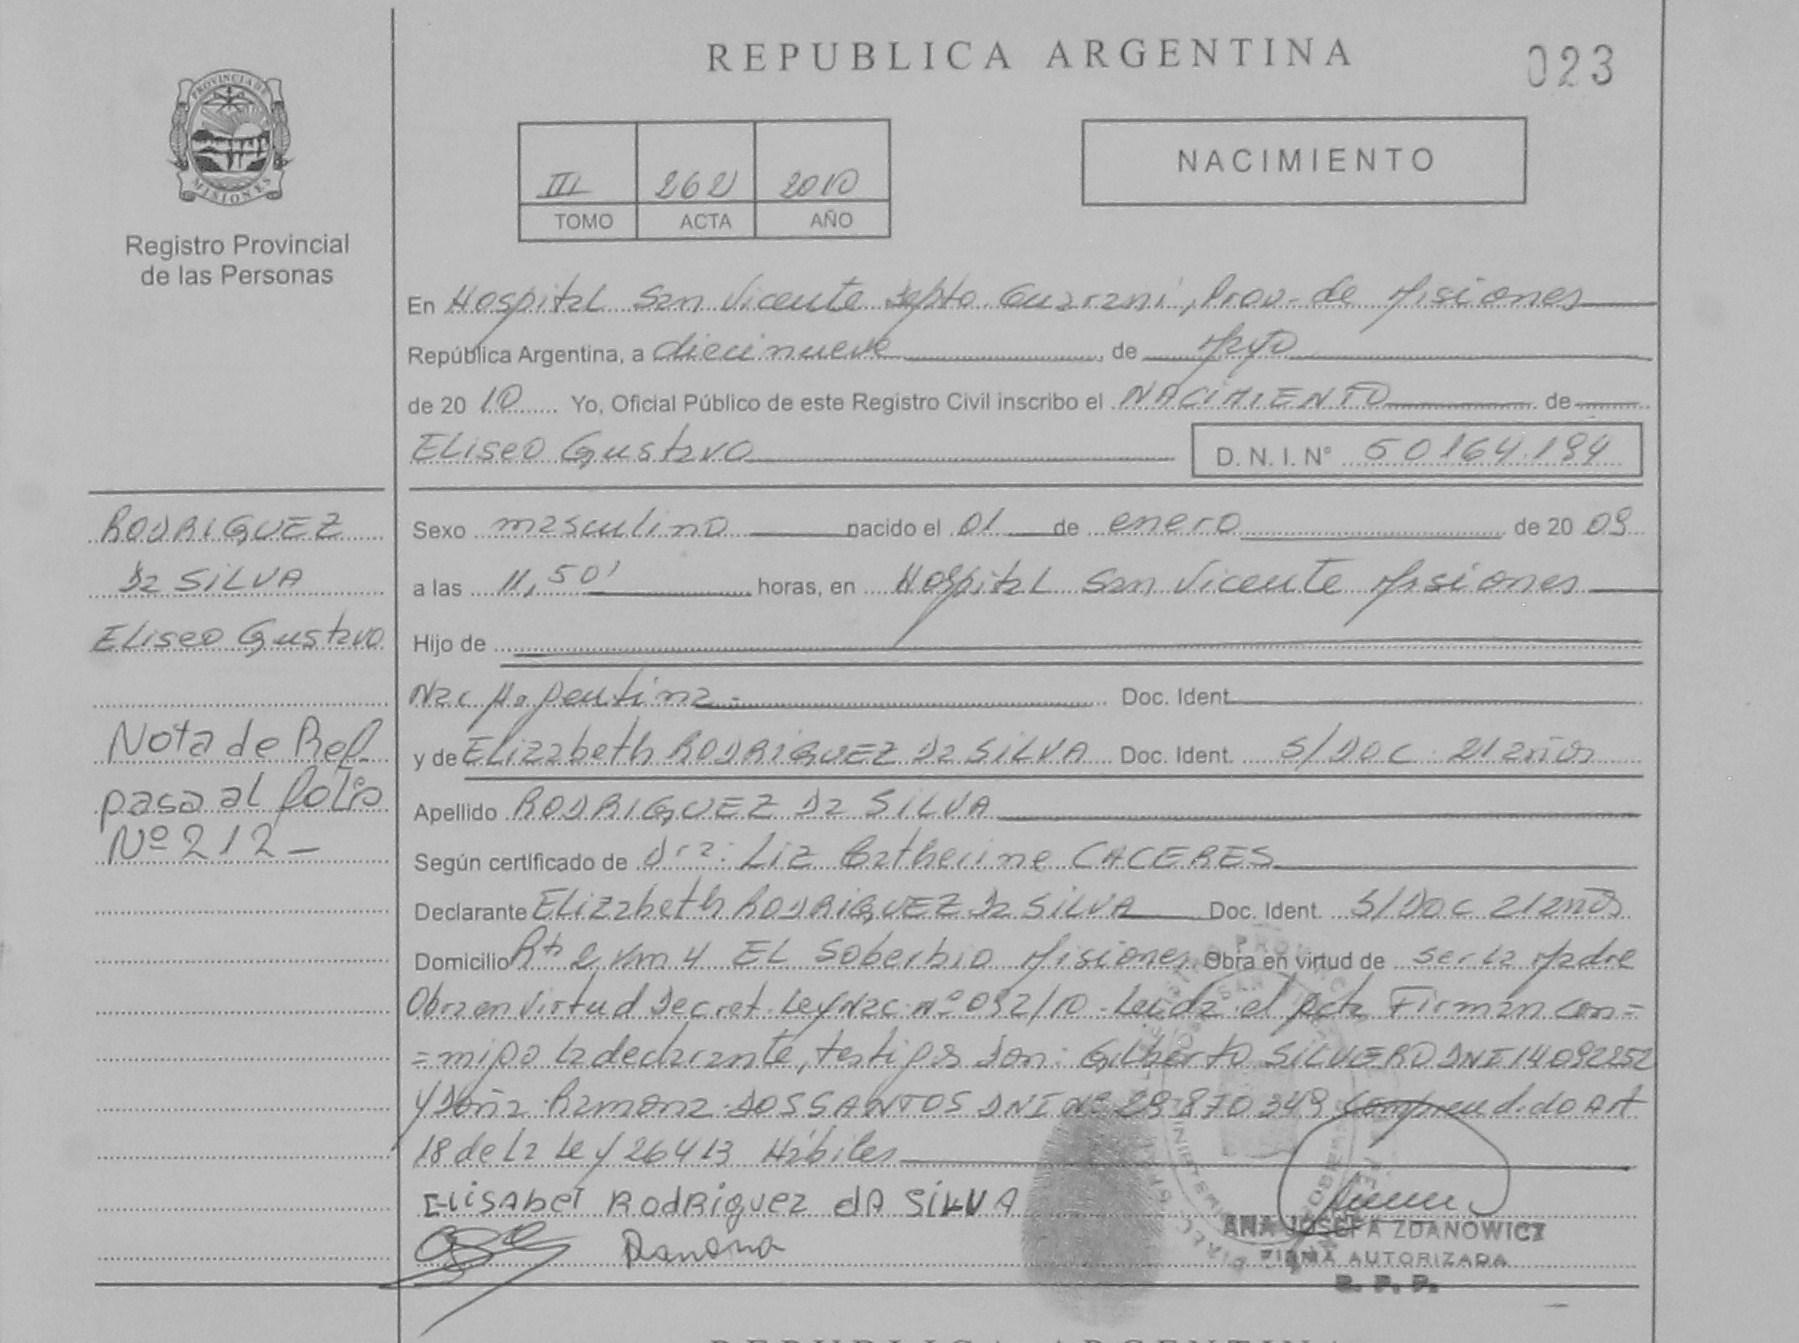 REPUBLICA ARGENTINA
023
PROVINCIA DE
MISIONES
Registro Provincial
de las Personas
III 262 2010
TOMO ACTA AÑO
NACIMIENTO
En Hospital San Vicente Depto Guarani, Prov. de Misiones
República Argentina, a diecinueve, de Mayo
de 2010 Yo, Oficial Público de este Registro Civil inscribo el NACIMIENTO de
Eliseo Gustavo D. N. I. N° 50164.194
RODRIGUEZ
Da SILVA
Eliseo Gustavo
Sexo masculino nacido el 01 de enero de 2009
a las 11,50' horas, en Hospital San Vicente Misiones
Hijo de
Nac Argentina - Doc. Ident.
y de Elizabeth RODRIGUEZ Da SILVA Doc. Ident. S/DOC 21 años
Nota de Ref.
pasa al folio
Nº 212-
Apellido RODRIGUEZ Da SILVA
Según certificado de Dra: Liz Catherine CACERES
Declarante Elizabeth RODRIGUEZ Da SILVA Doc. Ident. S/DOC 21 años
Domicilio Rta 2 Km 4 EL Soberbio Misiones Obra en virtud de ser la Madre
Obra en virtud Decret. Ley Nac. Nº 092/10 - Leida el acta Firman con=
=migo la declarante, testigos Don: Gilberto SILVERO DNI 14092252
Y Doña Ramona DOSSANTOS DNI Nº 29.870.349 Comprendido Art
18 de la Ley 26413 Hábiles
Elisabet Rodriguez dA SilVA
Ramona
ANA JOSEFA ZDANOWICZ
FIRMA AUTORIZADA
R. P. P.
REPUBLICA ARGENTINA